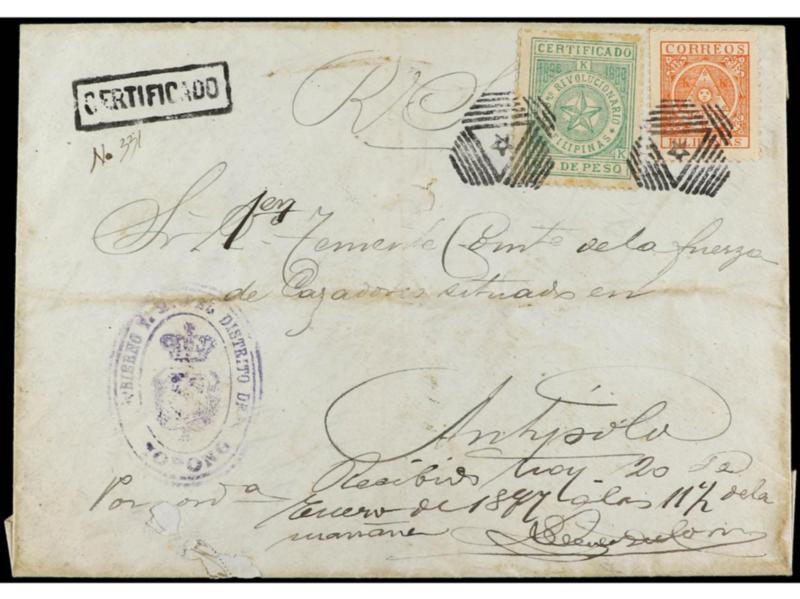 CERTIFICADO
No 331
CERTIFICADO
1896 K 1898
REVOLUCIONARIO
FILIPINAS
K
DE PESO
CORREOS
K K
FILIPINAS
Sr 1er Teniente Comte de la fuerza
de Cazadores situado en
GOBIERNO P. M. DEL DISTRITO DE
Antipolo
Recibido hoy 20 de
Enero de 1897 a las 11½ de la
mañana